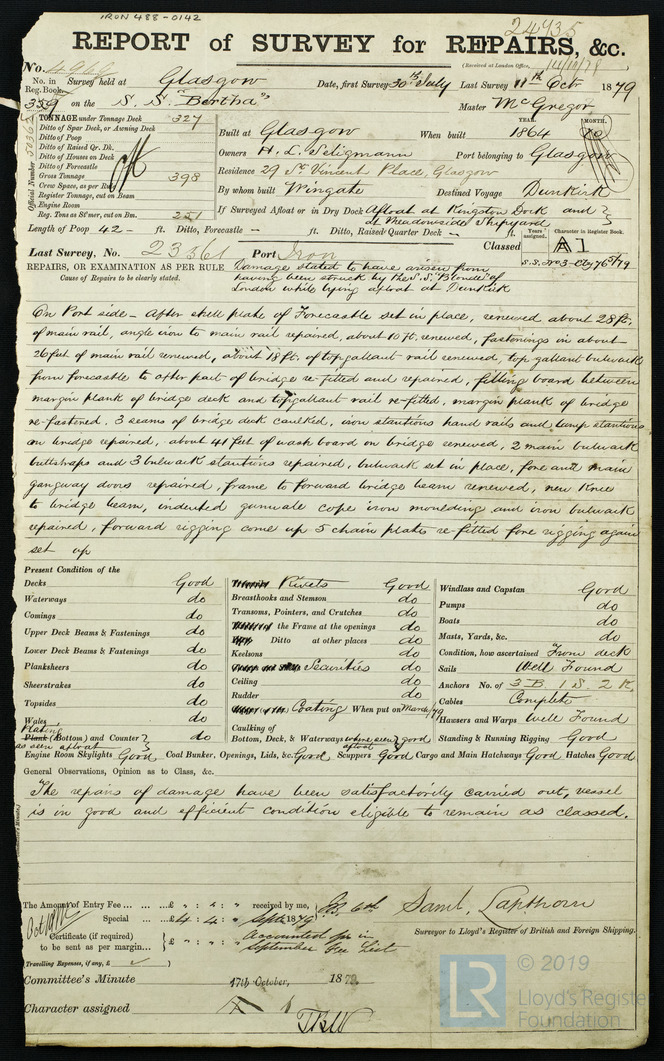 IRON 488-0142
24935
REPORT of SURVEY for REPAIRS, &c.
(Received at London Office, 14/10/79
No. 4966
No. in Reg. Book Survey held at Glasgow Date, first Survey 30th July Last Survey 11th Octr 1879
359 on the S. S. "Bertha" Master McGregor
TONNAGE under Tonnage Deck 327
Ditto of Spar Deck, or Awning Deck
Ditto of Poop
Ditto of Raised Qr. Dk.
Ditto of Houses on Deck
Ditto of Forecastle
Gross Tonnage 398
Crew Space, as per Rule
Register Tonnage, cut on Beam
Engine Room
Reg. Tons as St'mer, cut on Bm. 251
Official Number
Built at Glasgow When built YEAR. 1864 MONTH. 10
Owners H. L. Seligmann Port belonging to Glasgow
Residence 29 St. Vincent Place, Glasgow
By whom built Wingate Destined Voyage Dunkirk
If Surveyed Afloat or in Dry Dock Afloat at Kingston Dock and at Meadowside Shipyard
Length of Poop 42 - ft. Ditto, Forecastle - ft. Ditto, Raised Quarter Deck - ft.
Years assigned. Character in Register Book.
Classed A 1
Last Survey, No. 23361 Port Iron
S.S. No 3-Cly 76 5/79
REPAIRS, OR EXAMINATION AS PER RULE
Cause of Repairs to be clearly stated.
Damage stated to have arisen from
having been struck by the S.S. "Blonde" of
London while lying afloat at Dunkirk
On Port side - After shell plate of Forecastle set in place, renewed about 28 ft.
of main rail, angle iron to main rail repaired, about 10 ft. renewed, fastenings in about
26 feet of main rail renewed, about 18 ft. of topgallant rail renewed, top gallant bulwark
from forecastle to after part of bridge re-fitted and repaired, filling board between
margin plank of bridge deck and topgallant rail re-fitted, margin plank of bridge
re-fastened, 3 seams of bridge deck caulked, iron stantions hand rails and lamp stantions
on bridge repaired, about 41 feet of wash board on bridge renewed, 2 main bulwark
buttstraps and 3 bulwark stantions repaired, bulwark set in place, fore and main
gangway doors repaired, frame to forward bridge beam renewed, new knee
to bridge beam, indented gunwale cope iron moulding and iron bulwark
repaired, forward rigging come up 5 chain plates re-fitted fore rigging again
set up
Present Condition of the
Decks Good
Waterways do
Comings do
Upper Deck Beams & Fastenings do
Lower Deck Beams & Fastenings do
Planksheers do
Sheerstrakes do
Topsides do
Wales do
Plating
Plank (Bottom) and Counter do
as seen afloat
Rivets Good
Breasthooks and Stemson do
Transoms, Pointers, and Crutches do
the Frame at the openings do
Ditto at other places do
Keelsons do
Securities do
Ceiling do
Rudder do
Coating When put on March/79
Caulking of
Bottom, Deck, & Waterways where seen afloat good
Windlass and Capstan Good
Pumps do
Boats do
Masts, Yards, &c. do
Condition, how ascertained From deck
Sails Well Found
Anchors No. of 3 B 1 S. 2 K.
Cables Complete
Hawsers and Warps Well Found
Standing & Running Rigging Good
Engine Room Skylights Good Coal Bunker, Openings, Lids, &c. Good Scuppers Good Cargo and Main Hatchways Good Hatches Good
General Observations, Opinion as to Class, &c.
The repairs of damage have been satisfactorily carried out, vessel
is in good and efficient condition eligible to remain as classed.
The Amount of Entry Fee ... ... ... £ " : " : " received by me,
Special ... £4 : 4 : " Septr 1879
Certificate (if required) to be sent as per margin... £ " : " : " Accounted for in September Fee List
Travelling Expenses, if any, £
Saml. Lapthorn
Surveyor to Lloyd's Register of British and Foreign Shipping.
Committee's Minute 17th October, 1879
Character assigned A 1
© 2019
LR
Lloyd's Register
Foundation